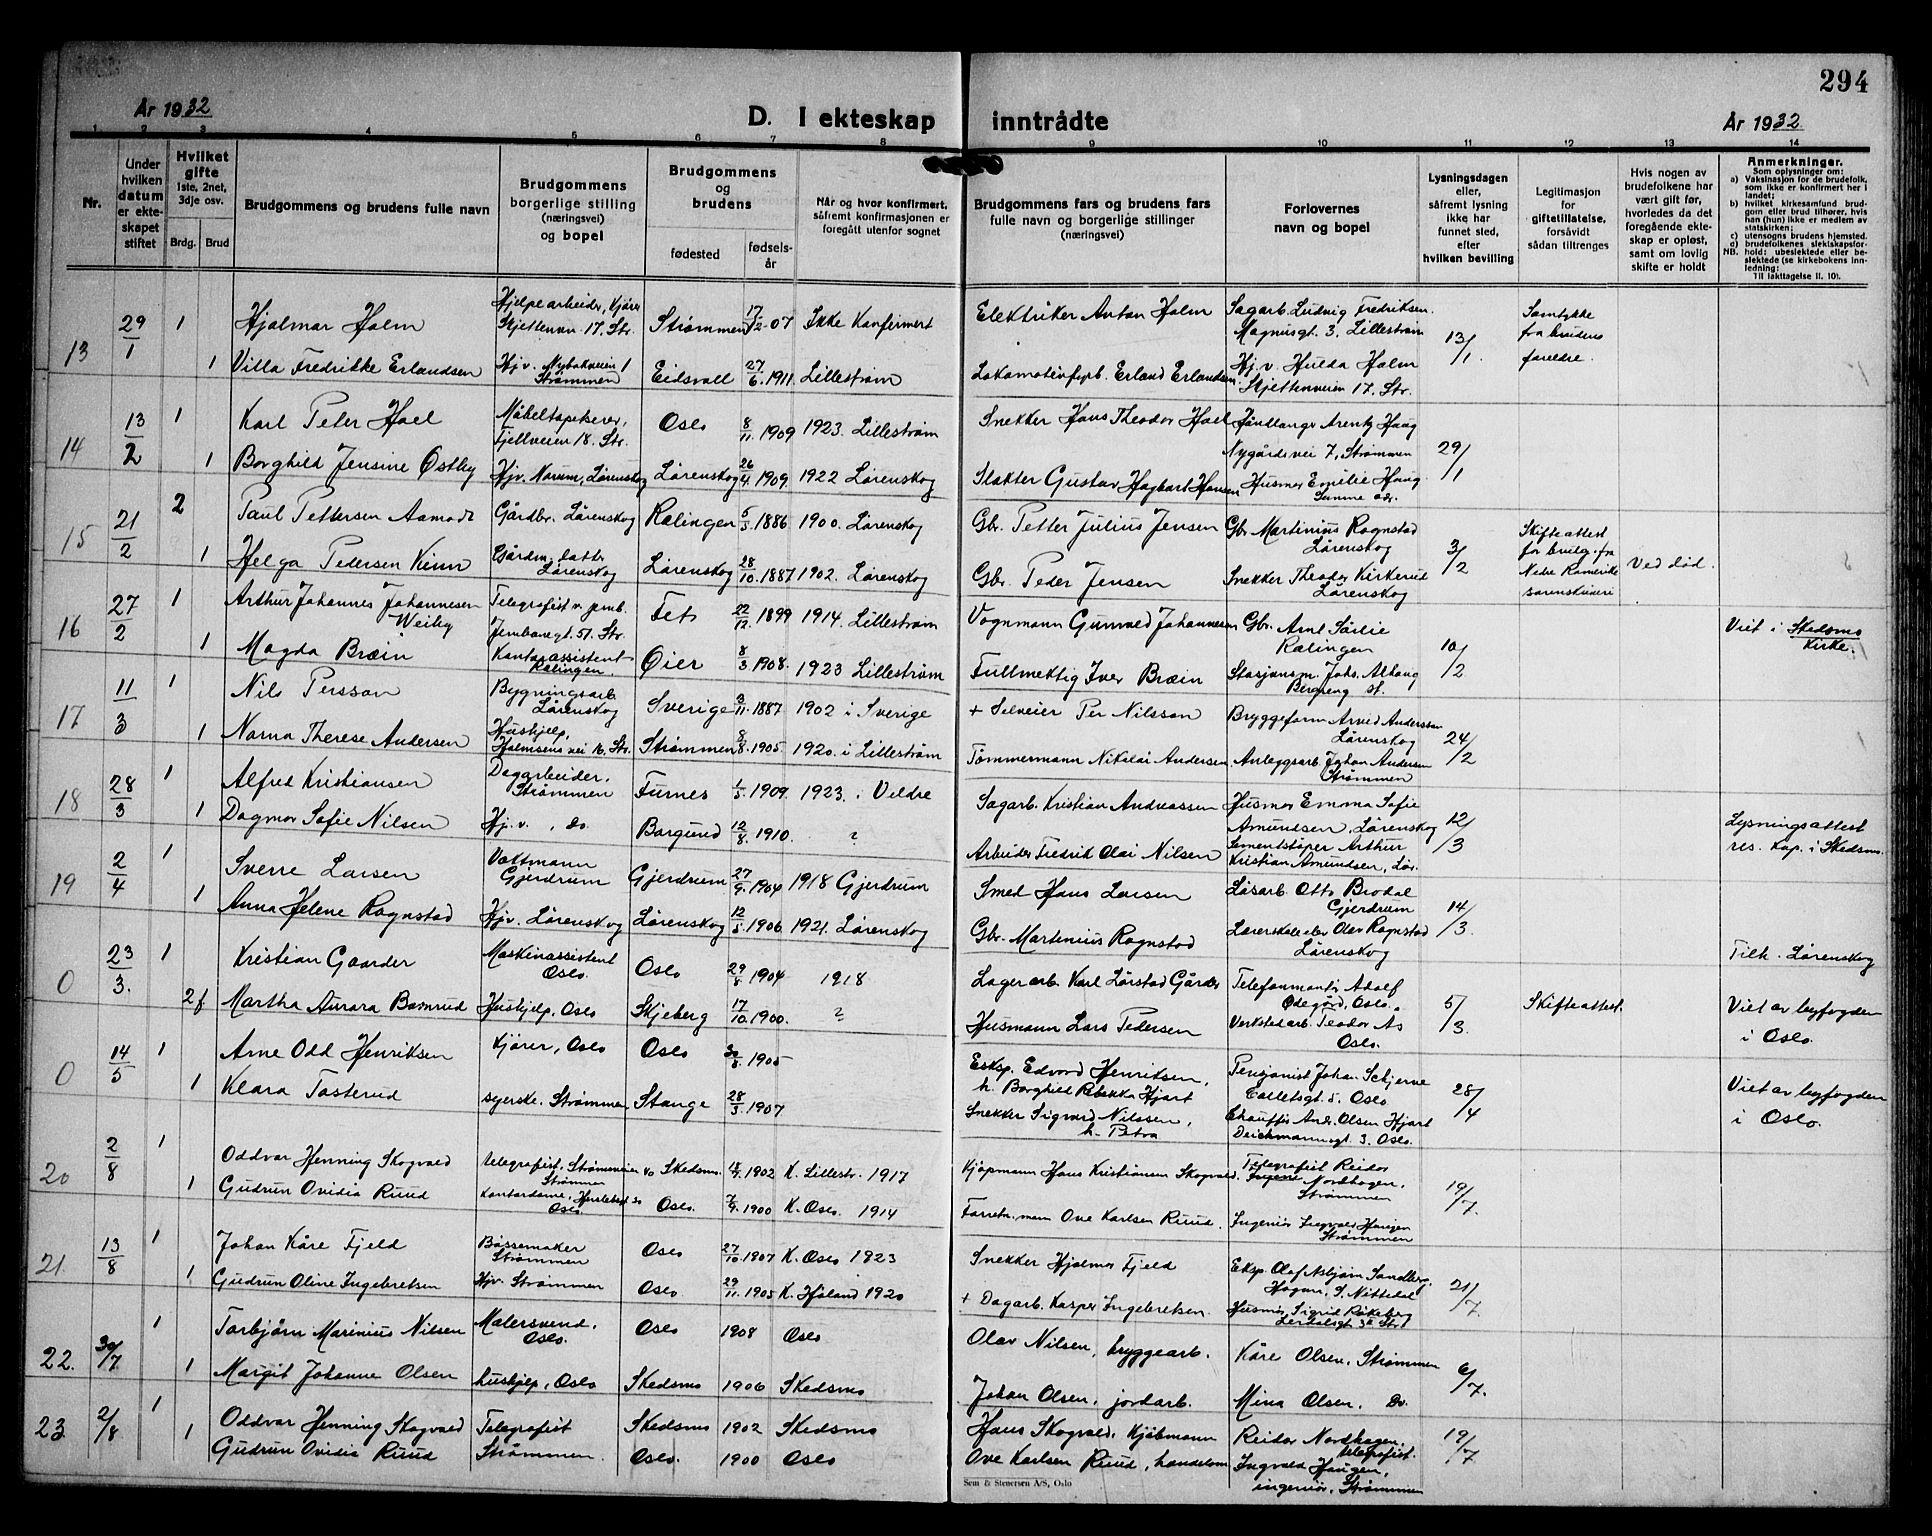 294
År 1932
D. I ekteskap inntrådte
År 1932
1 2 3 4 5 6 7 8 9 10 11 12 13 14
Nr.
Under hvilken datum er ekteskapet stiftet
Hvilket gifte 1ste, 2net, 3dje osv.
Brdg. Brud
Brudgommens og brudens fulle navn
Brudgommens borgerlige stilling (næringsvei) og bopel
Brudgommens og brudens
fødested
fødselsår
Når og hvor konfirmert, såfremt konfirmasjonen er foregått utenfor sognet
Brudgommens fars og brudens fars fulle navn og borgerlige stillinger (næringsvei)
Forlovernes navn og bopel
Lysningsdagen eller, såfremt lysning ikke har funnet sted, efter hvilken bevilling
Legitimasjon for giftetillatelse, forsåvidt sådan tiltrenges
Hvis nogen av brudefolkene har vært gift før, hvorledes da det foregående ekteskap er opløst, samt om lovlig skifte er holdt
Anmerkninger.
Som oplysninger om:
a) Vaksinasjon for de brudefolk, som ikke er konfirmert her i landet;
b) hvilket kirkesamfund brudgom eller brud tilhører, hvis han (hun) ikke er medlem av statskirken;
c) utensogns brudens hjemsted.
d) brudefolkenes slektskapsforhold: ubeslektede eller beslektede (se kirkebokens innledning:
NB.
Til iakttagelse II. 10).
13 29/1 1 Hjalmar Holm Hjelpearbeider, Kjører Skjettenvn 17. Str. Strømmen 17/12-07 Ikke Konfermert Elektriker Anton Holm Sagarb. Ludvig Fredriksen. Magnusgt. 3. Lillestrøm 13/1. Samtykke fra brudens foreldre.
1 Villa Fredrikke Erlandsen Hjv. Nybakveien 1 Strømmen Eidsvoll 27/6 1911 Lillestrøm Lokomotivfyrb. Erland Erlandsen Hj.v. Hulda Holm Skjettenveien 17. Str.
14 13/2 1 Karl Peter Hoel Møbeltapetserer, Fjellveien 18. Str. Oslo 8/11 1909 1923. Lillestrøm Snekker Hans Theodor Hoel Håndlanger Arentz Haag Nygårdsvei 7, Strømmen 29/1
1 Borghild Jensine Østby Hjv. Norum, Lørenskog Lørenskog 26/4 1909. 1922 Lørenskog Slakter Gustav Hagbart Hansen Husmor Emilie Haug Samme adr.
15 21/2 2 Paul Pettersen Aamodt Gårdbr. Lørenskog Rælingen 5/3 1886 1900. Lørenskog Gbr. Petter Julius Jensen Gbr. Martinius Rognstad Lørenskog 3/2 Skifteattest for brudg. fra Nedre Romerike sorenskriveri Ved død.
1 Helga Pedersen Kienn Gårdm. datter Lørenskog Lørenskog 28/10 1887 1902. Lørenskog Gbr. Peder Jensen Snekker Theodor Kirkerud Lørenskog
16 27/2 1 Arthur Johannes Johannesen Weiby Telegrafist v. jernb. Jernbanegt. 51. Str. Fet 22/12 1899 1914. Lillestrøm Vognmann Gunvald Johannesen Gbr. Arnt Sørlie Rælingen 10/2 Viet i Skedsmo Kirke.
1 Magda Bræin Kontorassistent Rælingen. Øier 8/3 1908. 1923 Lillestrøm Fullmektig Iver Bræin Stasjonsm. Johs. Alhaug Bergeng st.
17 11/3 1 Nils Persson Bygningsarb. Lørenskog Sverige 3/11 1887 1902 i Sverige + Selveier Per Nilsson Bryggeform. Arvid Andersson Lørenskog 24/2
1 Norna Therese Andersen Hushjelp, Holmsens vei 16. Str. Strømmen 8/8 1905 1920. i Lillestrøm Tømmermann Nikolai Andersen Anleggsarb. Johan Andersen Strømmen
18 28/3 1 Alfred Kristiansen Dagarbeider. Strømmen Furnes 1/5 1909. 1923. i Veldre Sagarb. Kristian Andreassen Husmor Emma Sofie Amundsen, Lørenskog 12/3 Lysningsattest res. kap. i Skedsmo.
1 Dagmar Sofie Nilsen Hj.v. , do Borgund 12/8. 1910. ? Arbeider Fredrik Olai Nilsen Sementstøper Arthur Kristian Amundsen, Lør.
19 2/4 1 Sverre Larsen Voltmann Gjerdrum Gjerdrum 27/9. 1904 1918 Gjerdrum Smed Hans Larsen Løsarb. Otto Brodal Gjerdrum 14/3.
1 Anna Helene Rognstad Hjv. Lørenskog Lørenskog 12/5 1906 1921. Lørenskog Gbr. Martinius Rognstad Lærerskoleelev Olav Rognstad Lørenskog
0 23/3. 1 Kristian Gaarder Maskinassistent Oslo. Oslo 29/8 1904 1918 Lagerarb. Karl Lørstad Gårder Telefonmontør Adolf Ødegård, Oslo. 5/3. Skifteattest. Tilh. Lørenskog
2 f Martha Aurora Bamrud Hushjelp, Oslo Skjeberg 17/10 1900. ? Husmann Lars Pedersen Verkstedarb. Teodor As Oslo. Viet av byfogden i Oslo.
0 14/5 1 Arne Odd Henriksen Kjører, Oslo Oslo 30/8 1905 Eksp. Edvard Henriksen, h. Borghild Rebekka Hjort Pensjonist Johan Schjerve Colletsgt 5. Oslo 28/4 Viet av byfogden i Oslo.
1 Klara Tosterud syerske. Strømmen Stange 28/3 1907 Snekker Sigvard Nilssen, h. Petra Chauffør Andr. Olsen Hjort Deichmannsgt 3. Oslo.
20 2/8 1 Oddvar Henning Skogvold telegrafist. Strømsveien 40 Strømmen Skedsmo. 18/9 1902 K. Lillestr. 1917 Kjøpmann Hans Kristiansen Skogvold. Telegrafist Reidar Nordhagen, Strømmen 19/7.
1 Gudrun Ovidia Ruud Kontordame, Oslo Oslo. 7/9. 1900 K. Oslo. 1914 Forretn.mann Ove Karlsen Ruud. Ingeniør Ingvald Haugen Strømmen
21 13/8 1 Johan Kåre Fjeld Børsemaker Strømmen Oslo 27/10 1907 K. Oslo 1923 Snekker Hjalmar Fjeld Eksp. Olaf Asbjørn Sandberg. Hagan, S. Nittedal 21/7.
1 Gudrun Oline Ingebretsen Hjv. Strømmen Oslo 29/11. 1905 K. Høland 1920 + Dagarb. Kasper Ingebretsen. Husmor Sigrid Råkeberg
22. 30/7. 1 Torbjørn Marinius Nilsen Malersvend. Oslo. Oslo 1908 Oslo Olav Nilsen, bryggearb. Kåre Olsen, Strømmen 6/7.
1 Margit Johanne Olsen hushjelp, Oslo Skedsmo 1906 Skedsmo Johan Olsen, jordarb. Mina Olsen. Do.
23 2/8 1 Oddvar Henning Skogvold Telegrafist Skedsmo 1902 Skedsmo Hans Skogvold, Kjøbmann Reidar Nordhagen, telegrafist. 19/7
1 Gudrun Ovidia Ruud Strømmen. Oslo. 1900 Oslo Ove Karlsen Ruud, handelsm Ingvald Haugen, ingeniør, Strømmen
Sem & Stenersen A/S, Oslo